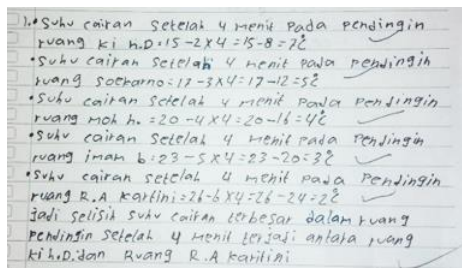 1.• Suhu cairan setelah 4 menit pada pendingin
ruang ki h.D = 15 - 2 x 4 = 15 - 8 = 7°C
• Suhu cairan setelah 4 menit pada pendingin
ruang Soekarno = 17 - 3 x 4 = 17 - 12 = 5°C
• Suhu cairan setelah 4 menit pada pendingin
ruang moh h. = 20 - 4 x 4 = 20 - 16 = 4°C
• Suhu cairan setelah 4 menit pada pendingin
ruang imam b = 23 - 5 x 4 = 23 - 20 = 3°C
• Suhu cairan setelah 4 menit pada pendingin
ruang R.A kartini = 26 - 6 x 4 = 26 - 24 = 2°C
jadi selisih suhu cairan terbesar dalam ruang
pendingin setelah 4 menit terjadi antara ruang
ki h.D. dan Ruang R.A karitini